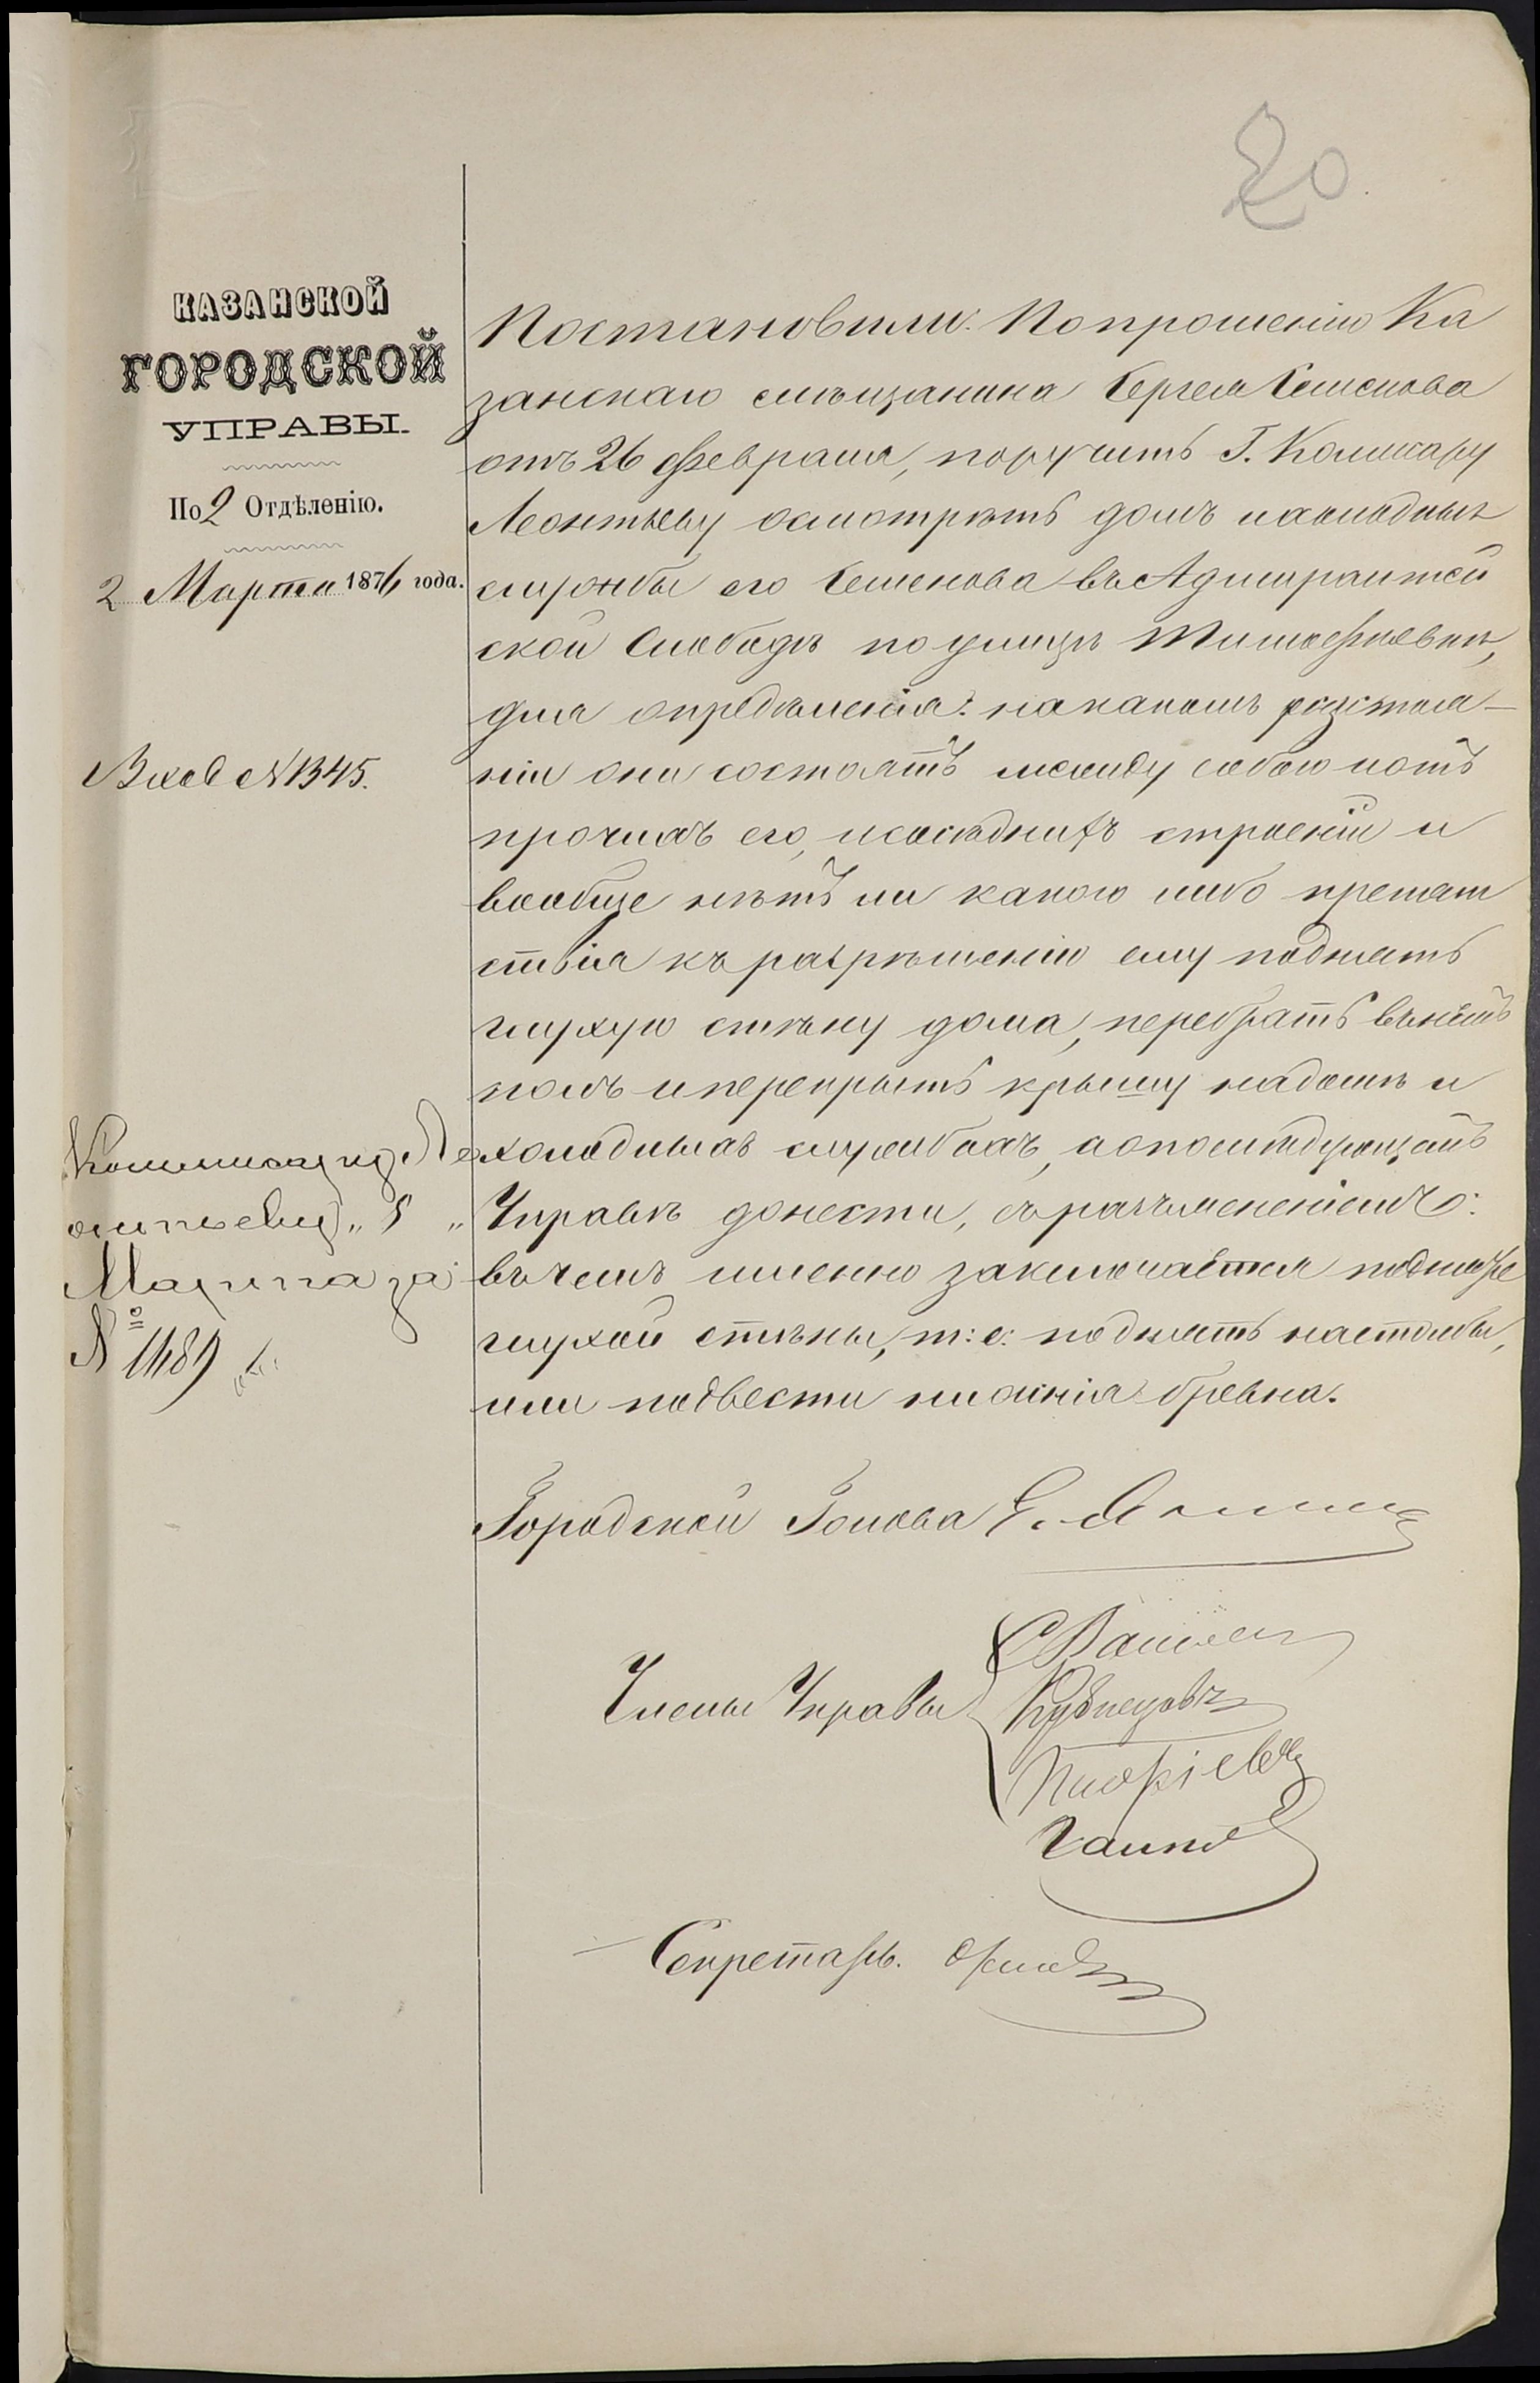 20
КАЗАНСКОЙ
ГОРОДСКОЙ
УПРАВЫ.
По 2 Отдѣленію.
2 Марта 1876 года.
Вход № 1345.
Коммисару Ле
онтьеву „ 5 „
Марта за
№ 1489
Постановили: По прошенію Ка
занскаго мѣщанина Сергея Семенова
отъ 26 февраля, поручить Г. Комисару
Леонтьеву осмотрѣть домъ и холодныя
службы его Семенова въ Адмиралтей
ской Слободѣ по улицѣ
для опредѣленія: на какомъ разстоя-
ніи они состоятъ между собою и отъ
прочихъ его, и сосѣднихъ строеній и
вообще нѣтъ ли какого либо препят
ствія къ разрѣшенію ему поднять
глухую стѣну дома, перебрать въ немъ
полъ и перекрыть крышу на домѣ и
холодныхъ службахъ, а о послѣдующемъ
Управѣ донести, съ разъясненіемъ:
въ чемъ именно заключается
глухой стѣны, т: е: поднять на столбы,
или подвести нижнія бревна.
Городской Голова
Члены Управы
Кузнецовъ
Секретарь.